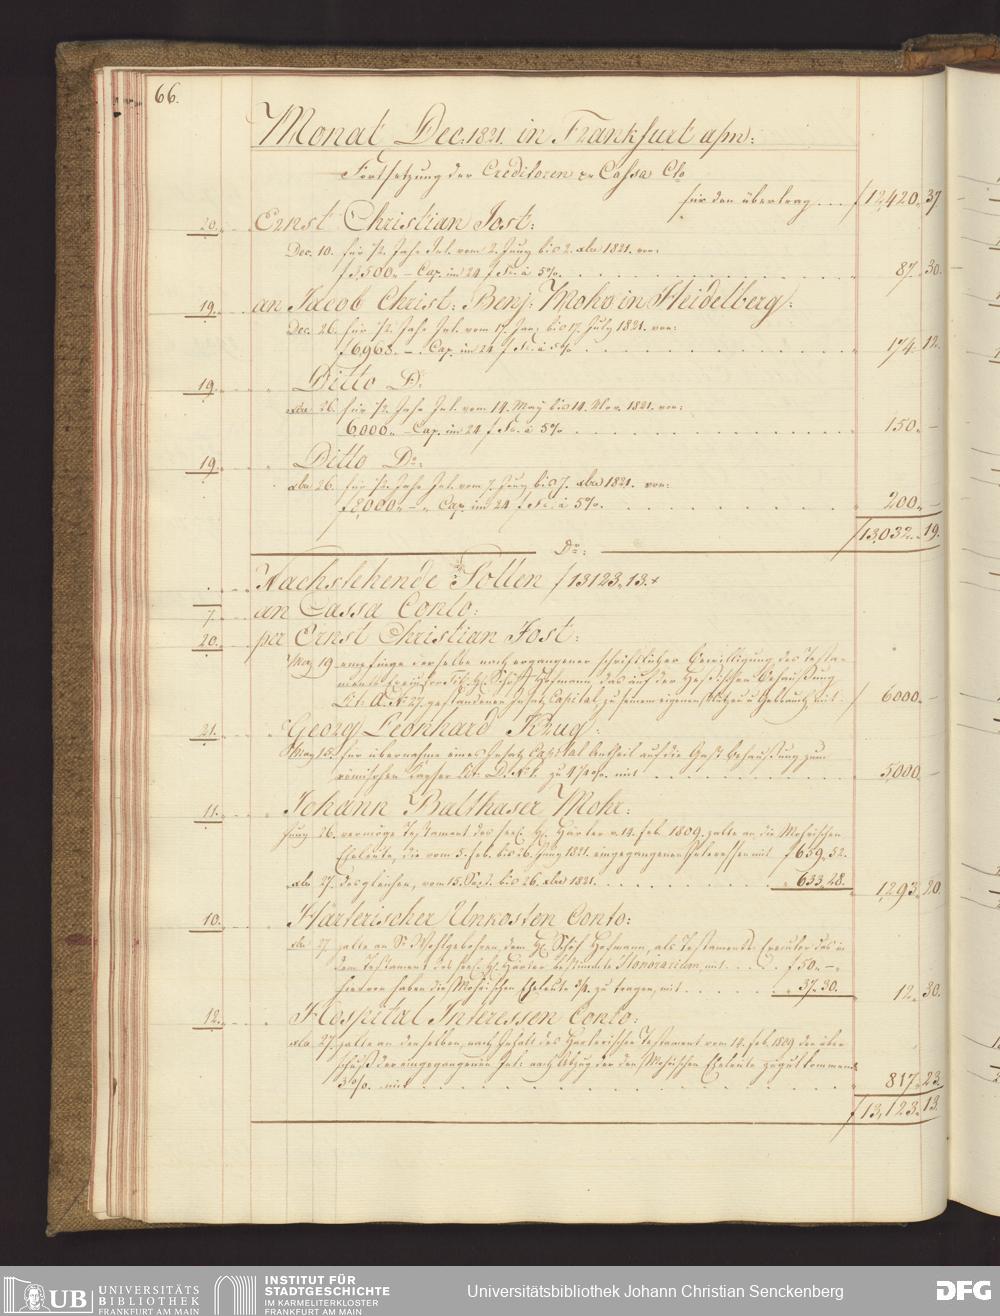 66.
Monat Dec. 1821. in Frankfurt a/m:
Fortsetzung der Creditoren pr Cassa Cto
für den übertrag . . . f 12,420. 37
20. Ernst Christian Jost:
Dec. 10. für 1/2 Jahr Int. vom 2. Juny bis 2. xbr 1821. von:
f 3,500. – Cap. im 24 f Fs. à 5%. 87. 30.
19. an Jacob Christ: Benj: Mohr in Heidelberg:
Dec. 26. für 1/2 Jahr Int. vom 17. Jan: bis 17. July 1821. von:
f 6968. – Cap. im 24 f Fs. à 5% 174. 12.
19. Ditto Do:
xbr 26. für 1/2 Jahr Int. vom 14. May bis 14. Nov. 1821. von:
6000. – Cap. im 24 f Fs. à 5% 150. –
19. Ditto Do:
xbr 26. für 1/2 Jahr Int. vom 7. Juny bis 7. xbr 1821. von:
f 8,000. – Cap. im 24 f Fs. à 5%. 200. –
f 13,032. 19.
Do:
Nachstehende Sollen f 13123. 13. x
7. an Cassa Conto:
20. per Ernst Christian Jost:
May 19 empfinge derselbe nach ergangener schriftlicher Bewilligung des Testa-
ments Hofmann das auf der Behaußung
Lit. A. No 27. gestandenen Insatz Capital zu seinem eigenen Nutzen u Gebrauch mit f 6000. –
21. Georg Leonhard Krug:
May 15. für übernahme eines Insatz Capital Antheil auf die Gast Behaußung zum
römischen Kayser Lit. D. No 1. zu 4 % mit 5,000. –
11. Johann Balthaser Mohr:
Juny 26. vermöge Testament des seel. H. Härter v. 14. feb. 1809. zalte an die Mohrischen
Eheleute, die vom 5. feb. bis 26. Juny 1821. eingegangenen Interessen mit f 659. 52.
xbr 27. desgleichen, vom 15. Sept. bis 26. xbr 1821. 633. 28. 1,293. 20.
10. Harterischer Unkosten Conto:
xbr 27 zalte an Sr Wohlgebohren, dem H. Schöf Hofmann, als Testaments Executor das in
dem Testament des seel. H. Härter bestimmte Honorarium, mit . . f 50. –
hievon haben die Mohrischen Eheleute 3/4 zu tragen, mit 37. 30. 12. 30.
12. Hospital Interessen Conto:
xbr 27. zalte an denselben, nach Inhalt des Harterischen Testament vom 14. feb. 1809 den über-
schuß der eingegangenen Int: nach Abzug der den Mohrischen Eheleute zugut kommende
3%. mit 817. 23.
f 13,123. 13.
UB UNIVERSITÄTS BIBLIOTHEK FRANKFURT AM MAIN
INSTITUT FÜR STADTGESCHICHTE IM KARMELITERKLOSTER FRANKFURT AM MAIN
Universitätsbibliothek Johann Christian Senckenberg
DFG